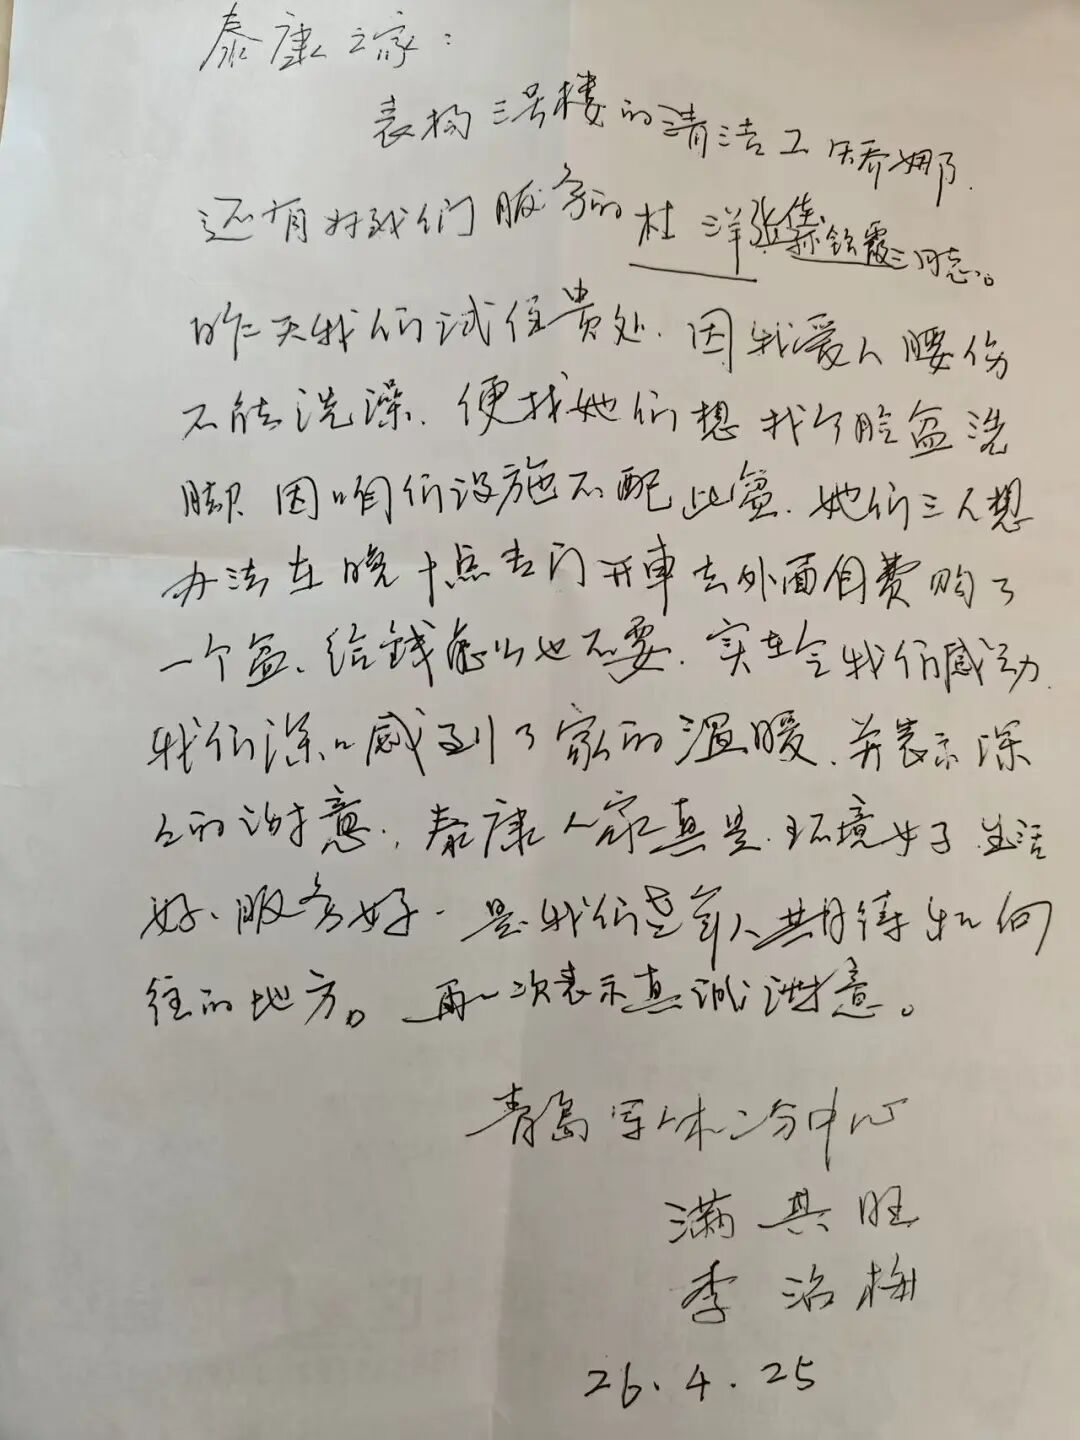 泰康之家：
表扬三号楼的清洁工乔娜.
还有对我们服务的杜洋张 霞三同志。
昨天我们试住贵处.因我爱人腰伤
不能洗澡.便找她们想找个脸盆洗
脚.因咱们设施不配此盆.她们三人想
办法在晚十点去门开车去外面自费购了
一个盆、给钱怎么也不要.实在令我们感动.
我们深心感到了家的温暖.并表示深
之的谢意.泰康人家真是.环境好.生活
好、服务好.是我们老年人共期待和向
往的地方。再一次表示真诚谢意。
青岛军休二分中心
满其旺
李洺梅
26.4.25